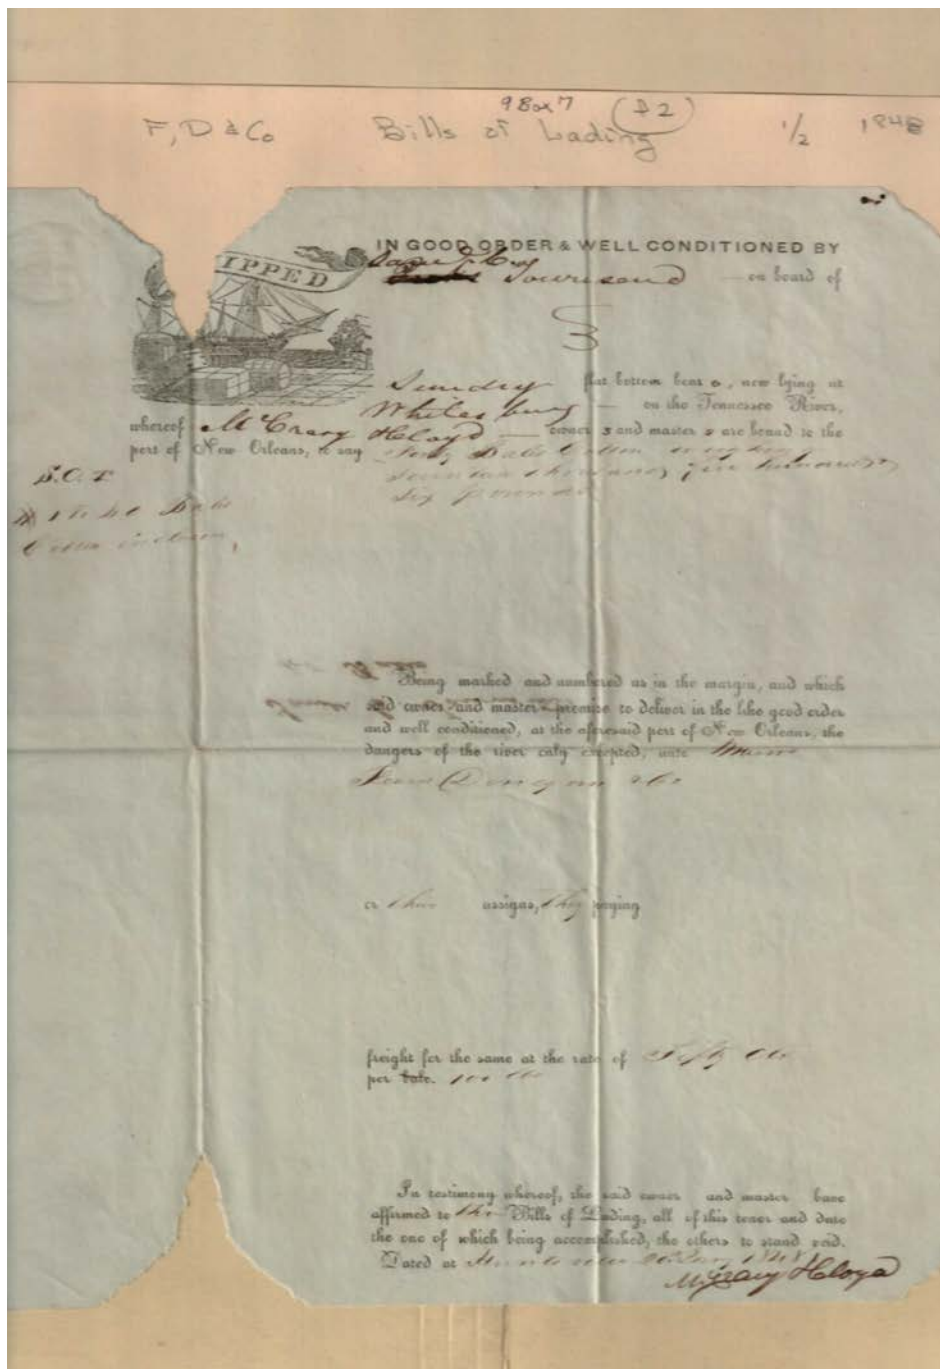 9 Box 7 (f2)
F, D & Co Bills of Lading 1/2 1848
IPPED
IN GOOD ORDER & WELL CONDITIONED BY
Townsend on board of
Sundry flat bottom boat s, now lying at
Whitesburg on the Tennessee River,
whereof McCrary & Cloyd owner s and master s are bound to the
port of New Orleans, to say Forty Bales Cotton weighing
Seventeen thousand five hundred &
Six pounds
S.O.T
1 to 40 Bales
Cotton
Being marked and numbered as in the margin, and which
said owner and master promise to deliver in the like good order
and well conditioned, at the aforesaid port of New Orleans, the
dangers of the river only excepted, unto
Fearn Donegan & Co
or their assigns, they paying
freight for the same at the rate of Fifty Cts
per bale. 100 lbs
In testimony whereof, the said owner and master have
affirmed to Bills of Lading, all of this tenor and date
the one of which being accomplished, the others to stand void.
Dated at Huntsville Jany 1848
McCrary & Cloyd